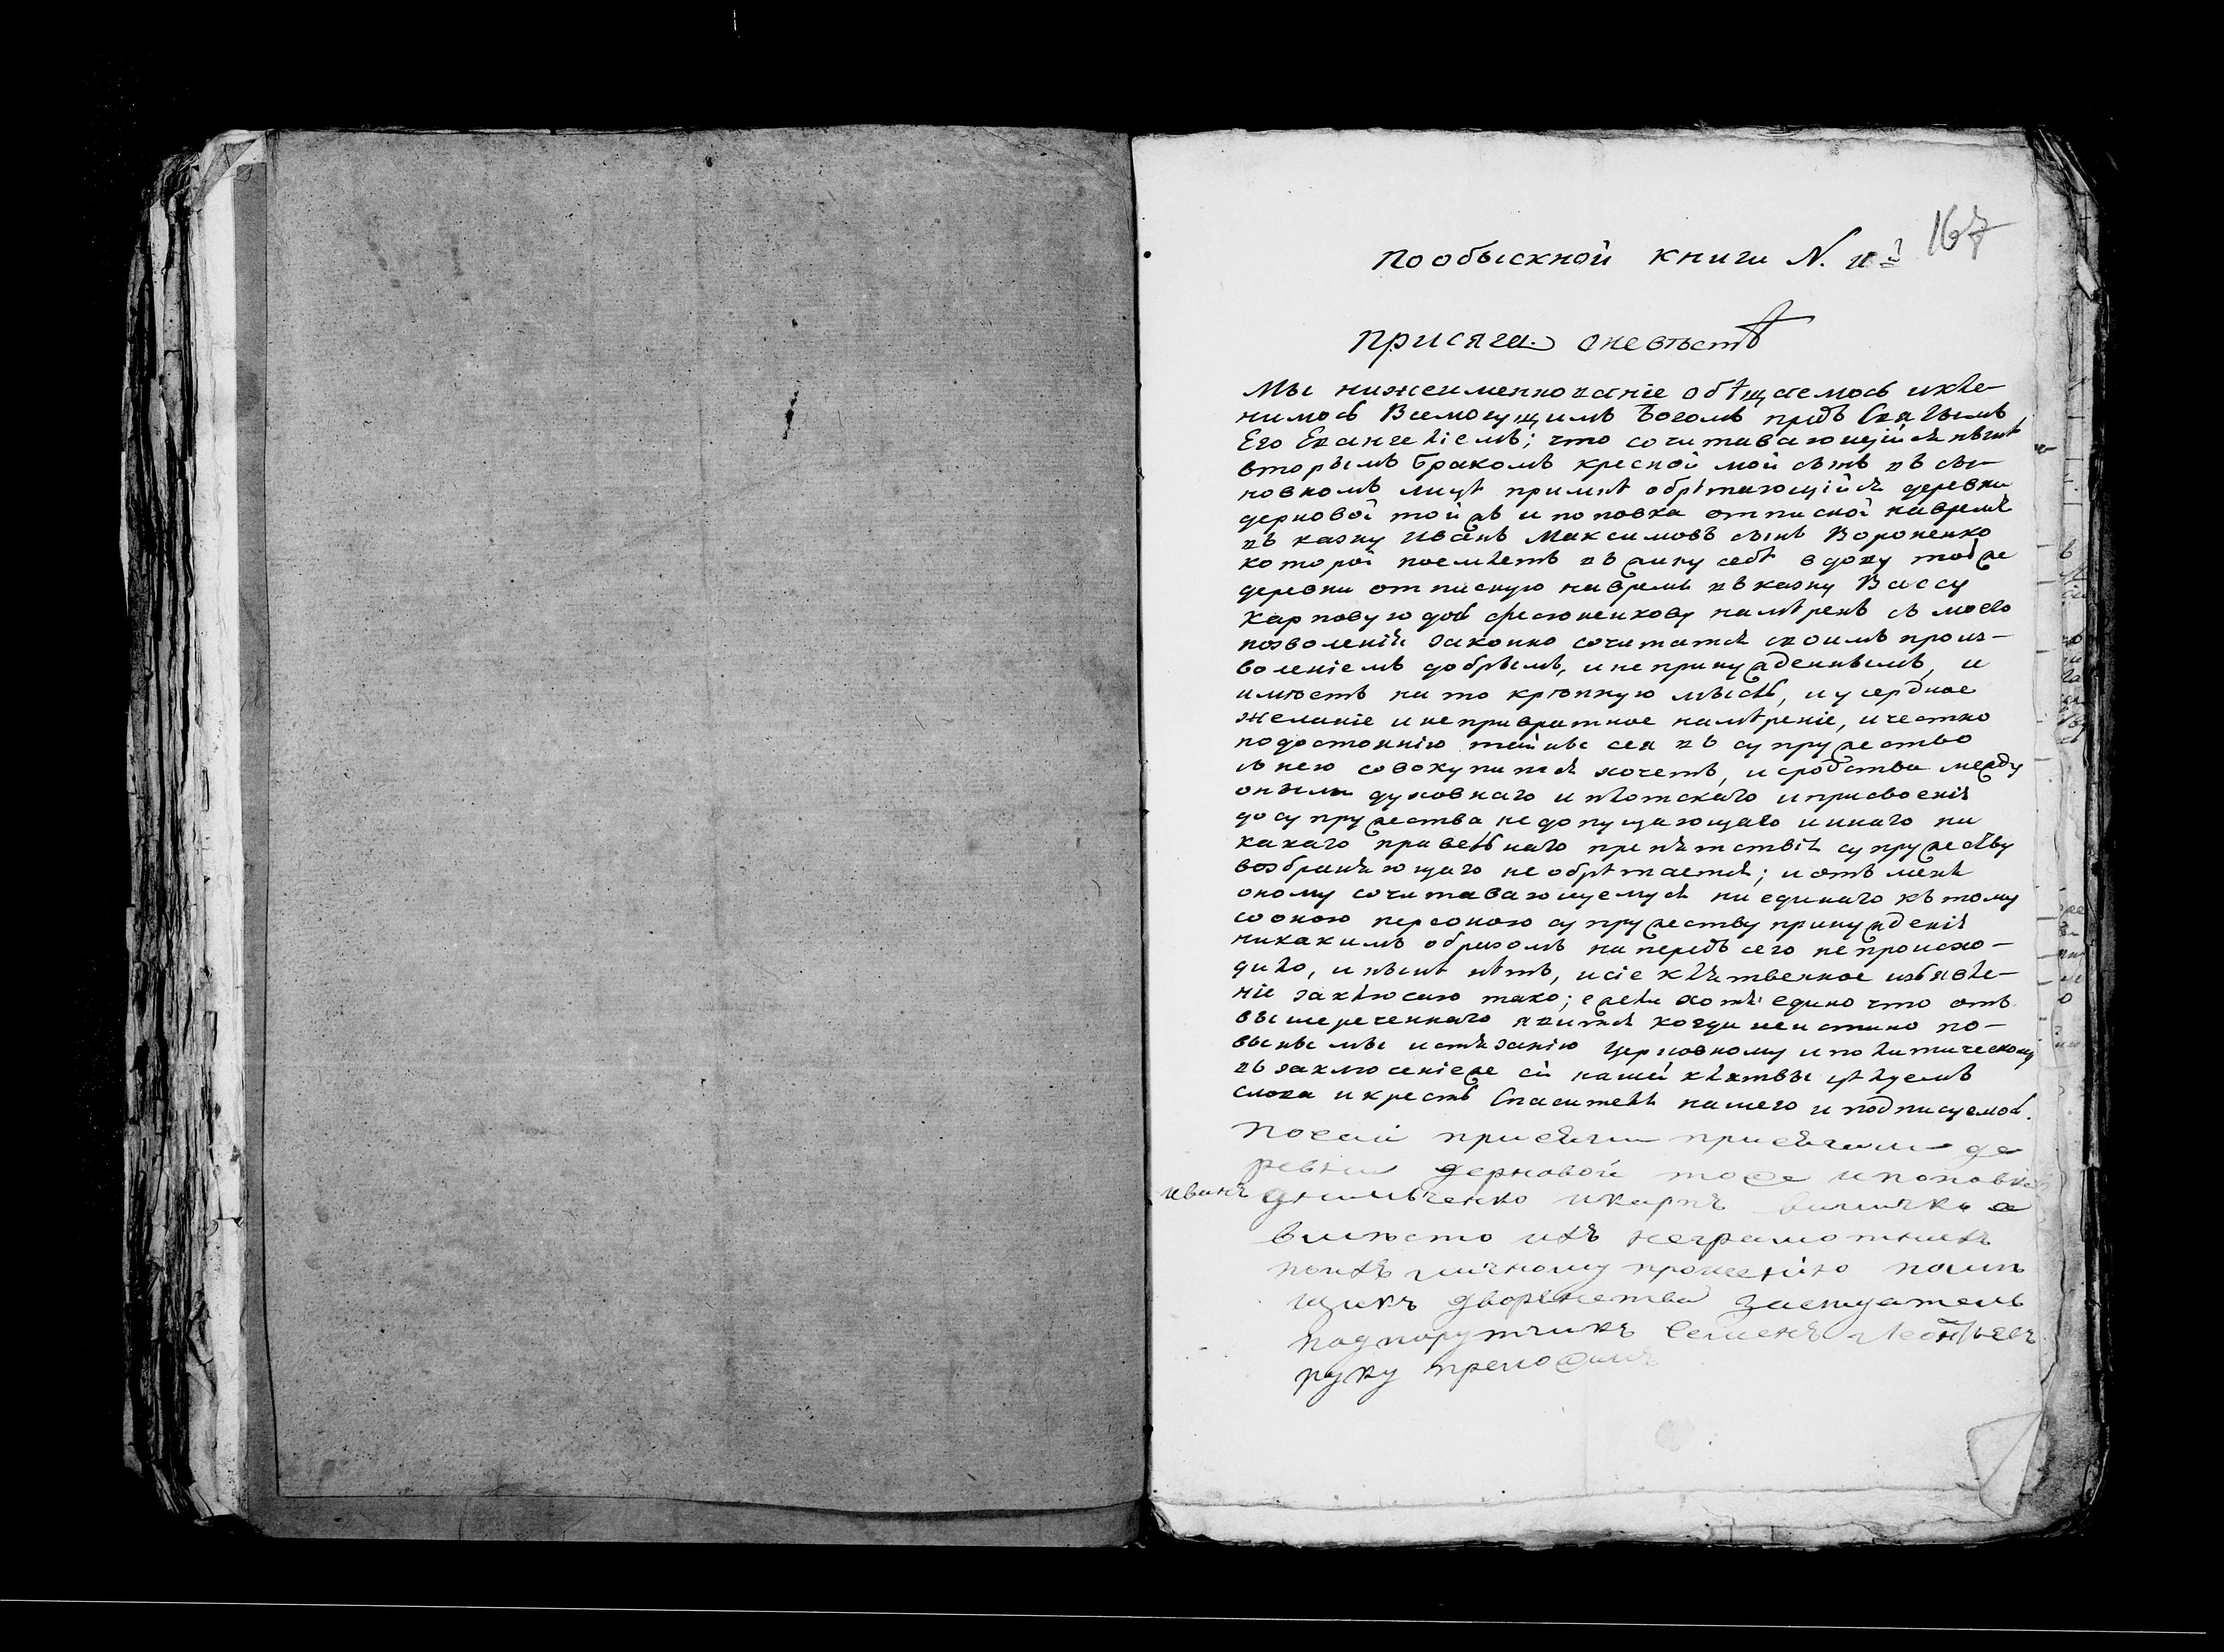 167
по обыскной книги N. 11й
присяга о невѣстѣ
Мы нижеименнованніе обѣщаемось и кле-
нимось Всемогущимъ Богомъ предъ Святымъ
Его Евангеліемъ; что сочитавающійся нынѣ
вторымъ бракомъ кресной мой сынъ въ сы-
новномъ мѣсте обрѣтающійся деревни
дерновой той жъ и поповка отписной на время
въ казну Иванъ Максимовъ сынъ Вороненко
которой поемлетъ въ жину себѣ вдову той же
деревни отписную на время въ казну Вассу
Карпову ю дочь Фесюненкову намѣренъ съ моего
позволенія законно сочитатися своимъ произ-
воленіемъ добрымъ, и не принужденнымъ, и
имѣетъ на то крѣпкую мысль, и усердное
желаніе и непривратное намѣреніе, и честно
по достоинію тайны сея въ супружество
съ нею совокупитися хочетъ, и сродства между
оными духовнаго и плотскаго и присвоенія
до супружества не допущающаго и инаго ни
какаго правелнаго препятствія супружеству
возбраняющаго не обрѣтается; и отъ мене
оному сочитавающемуся ни единаго къ тому
со оною персоною супружеству принужденія
никакимъ образомъ на передъ сего не происхо-
дило, и нынѣ нѣтъ, и сіе клятвенное изъявле-
ніе заключаю тако; ежели хотя едино что отъ
вышереченнаго явится когда неистино по-
винны мы истязанію церковному и политическому
въ заключеніе же сей нашей клятвы цѣлуемъ
слова и крестъ Спасителя нашего и подписуемось.
По сей присяги присягали де
ревни дерновой тоже и поповка
иванъ данильченко и карпъ
вмѣсто ихъ неграмотныхъ
по ихъ личному прошенію помѣ
щикъ дворянства заседатель
подпорутчикъ Семенъ Леонтьевъ
руку приложилъ